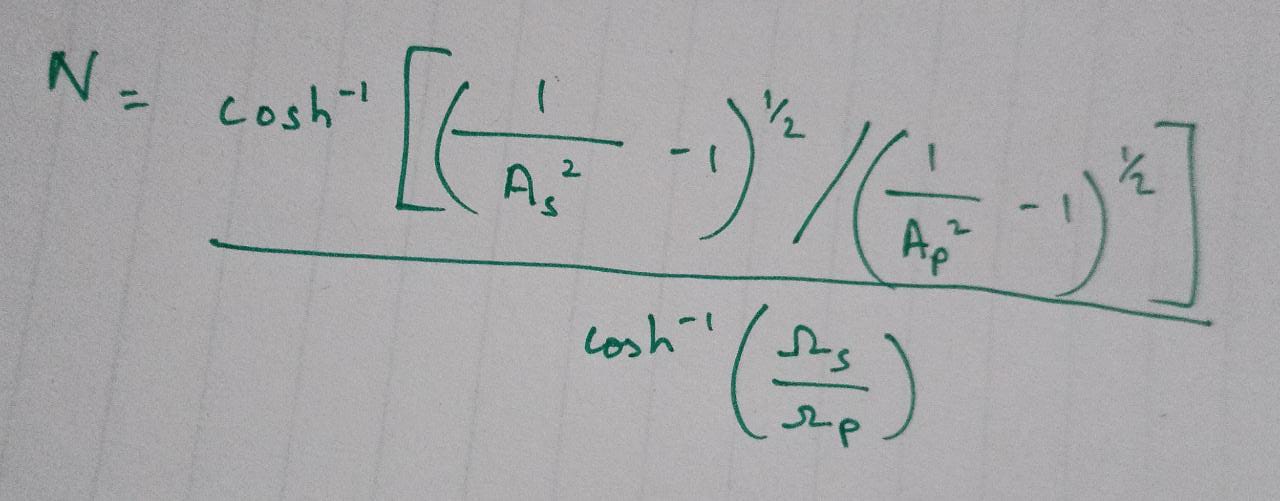 N = cosh⁻¹ [ ( 1 / Aₛ² - 1 )^½ / ( 1 / Aₚ² - 1 )^½ ]
cosh⁻¹ ( Ωₛ / Ωₚ )